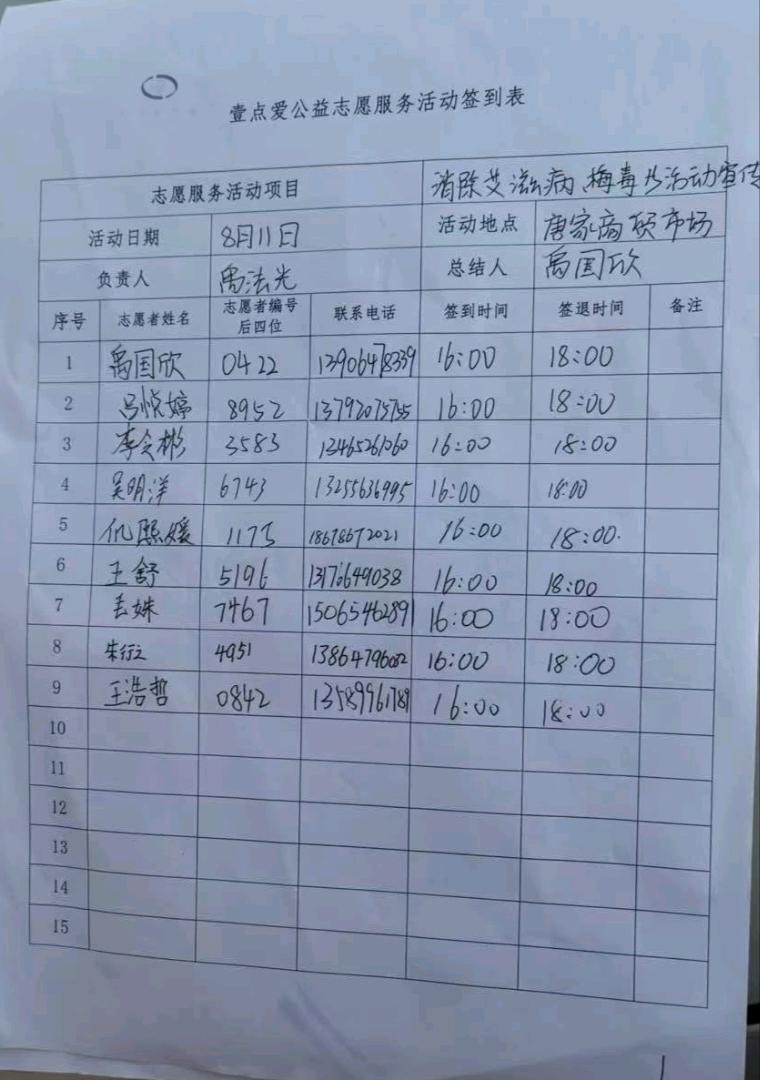 壹点爱公益志愿服务活动签到表
志愿服务活动项目 消除艾滋病、梅毒 活动宣传
活动日期 8月11日 活动地点 唐家商贸市场
负责人 禹法光 总结人 禹国欣
序号 志愿者姓名 志愿者编号后四位 联系电话 签到时间 签退时间 备注
1 禹国欣 0422 13906478339 16:00 18:00
2 吕悦婷 8952 16:00 18:00
3 李会彬 3583 13465261060 16:00 18:00
4 吴明洋 6743 13255636995 16:00 18:00
5 仇熙媛 1175 18678672021 16:00 18:00.
6 王舒 5196 16:00 18:00
7 7467 15065462891 16:00 18:00
8 4951 16:00 18:00
9 王浩哲 0842 13589961789 16:00 18:00
10
11
12
13
14
15